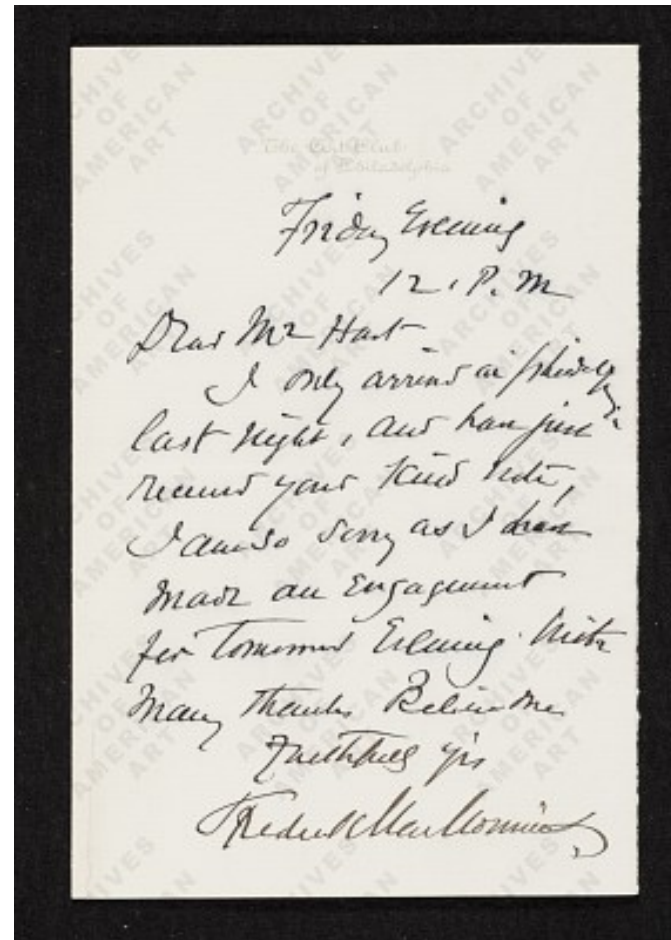 The Art Club
of Philadelphia
Friday Evening
12. P. M
Dear Mr Hart
I only arrived in
last night, and have just
received your kind note,
I am so sorry as I have
made an Engagement
for Tomorrow Evening. With
many thanks Believe me
Faithfully yrs
Frederick MacMonnies
ARCHIVES
OF
AMERICAN
ART